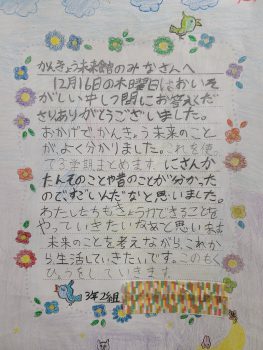 かんきょう未来館のみなさんへ
12月16日の木曜日はおいそ
がしい中しつ問にお答えくだ
さりありがとうございました。
おかげでかんきょう未来のこと
が、よく分かりました。これを使っ
て3学期まとめます。にさんか
たんそのことや昔のことが分かった
ので、すごいんだなと思いました。
わたしたちもきょう力できることを
やっていきたいなあと思います。
未来のことを考えながら、これか
ら生活していきたいです。このもく
ひょうをしていきます。
3年2組